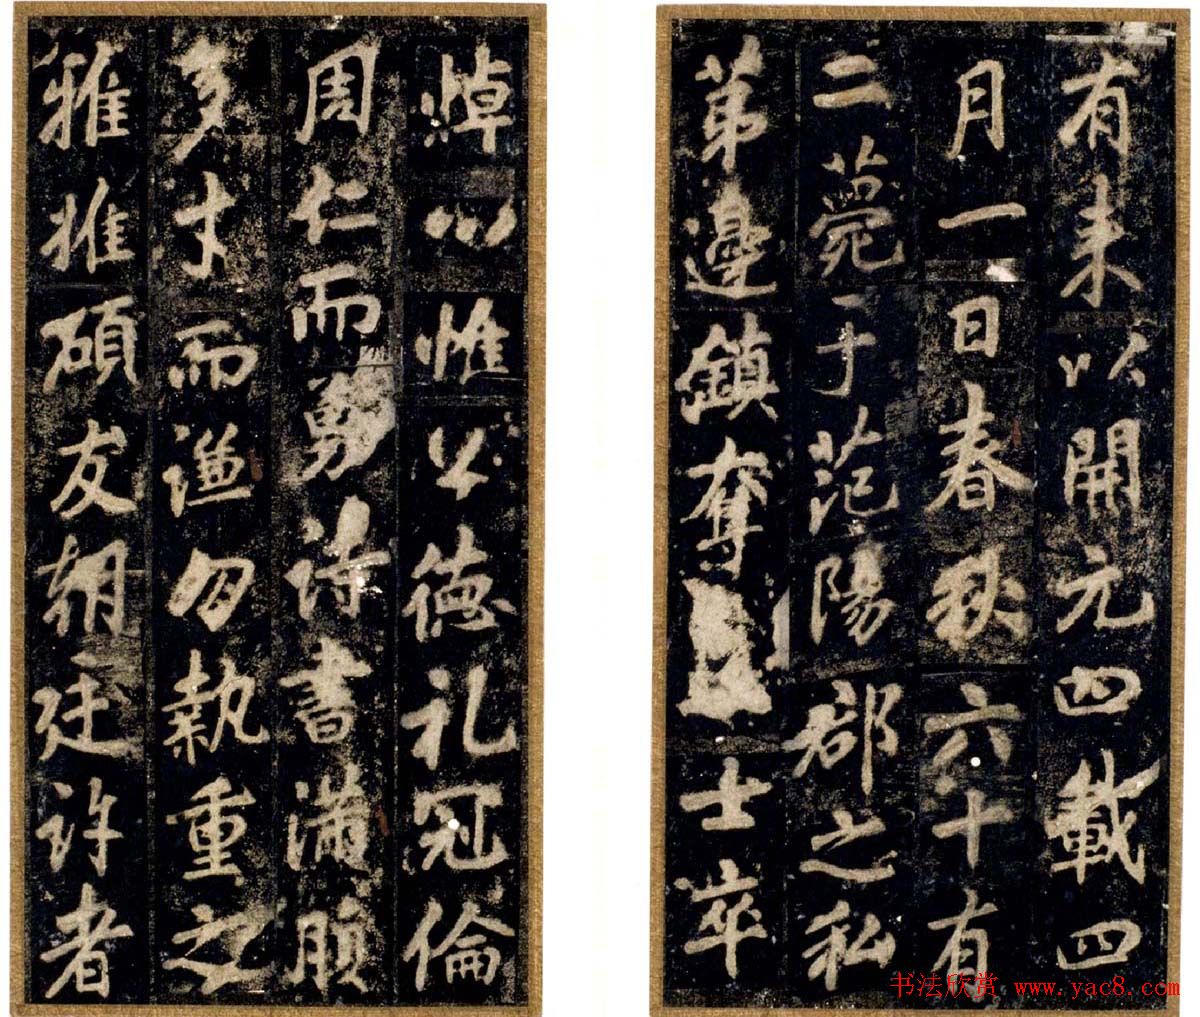 有未以開元四載四
月一日春秋六十有
二薨于范陽郡之私
苐邊鎮奪士卒
悼心惟公德礼冠倫
周仁而勇詩書滿腹
多才而謙勿執重之
雅推碩友朝廷許者
书法欣赏 www.yac8.com